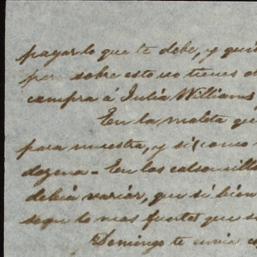 pagar lo que te debe, y qui
pero sobre esto no tienes
compra á Julia Williams
En la maleta que
para muestra, y si como
dozena - En los calsonsillo
debia variar, que si bien
segu lo mas fuertes que se
Domingo te envia